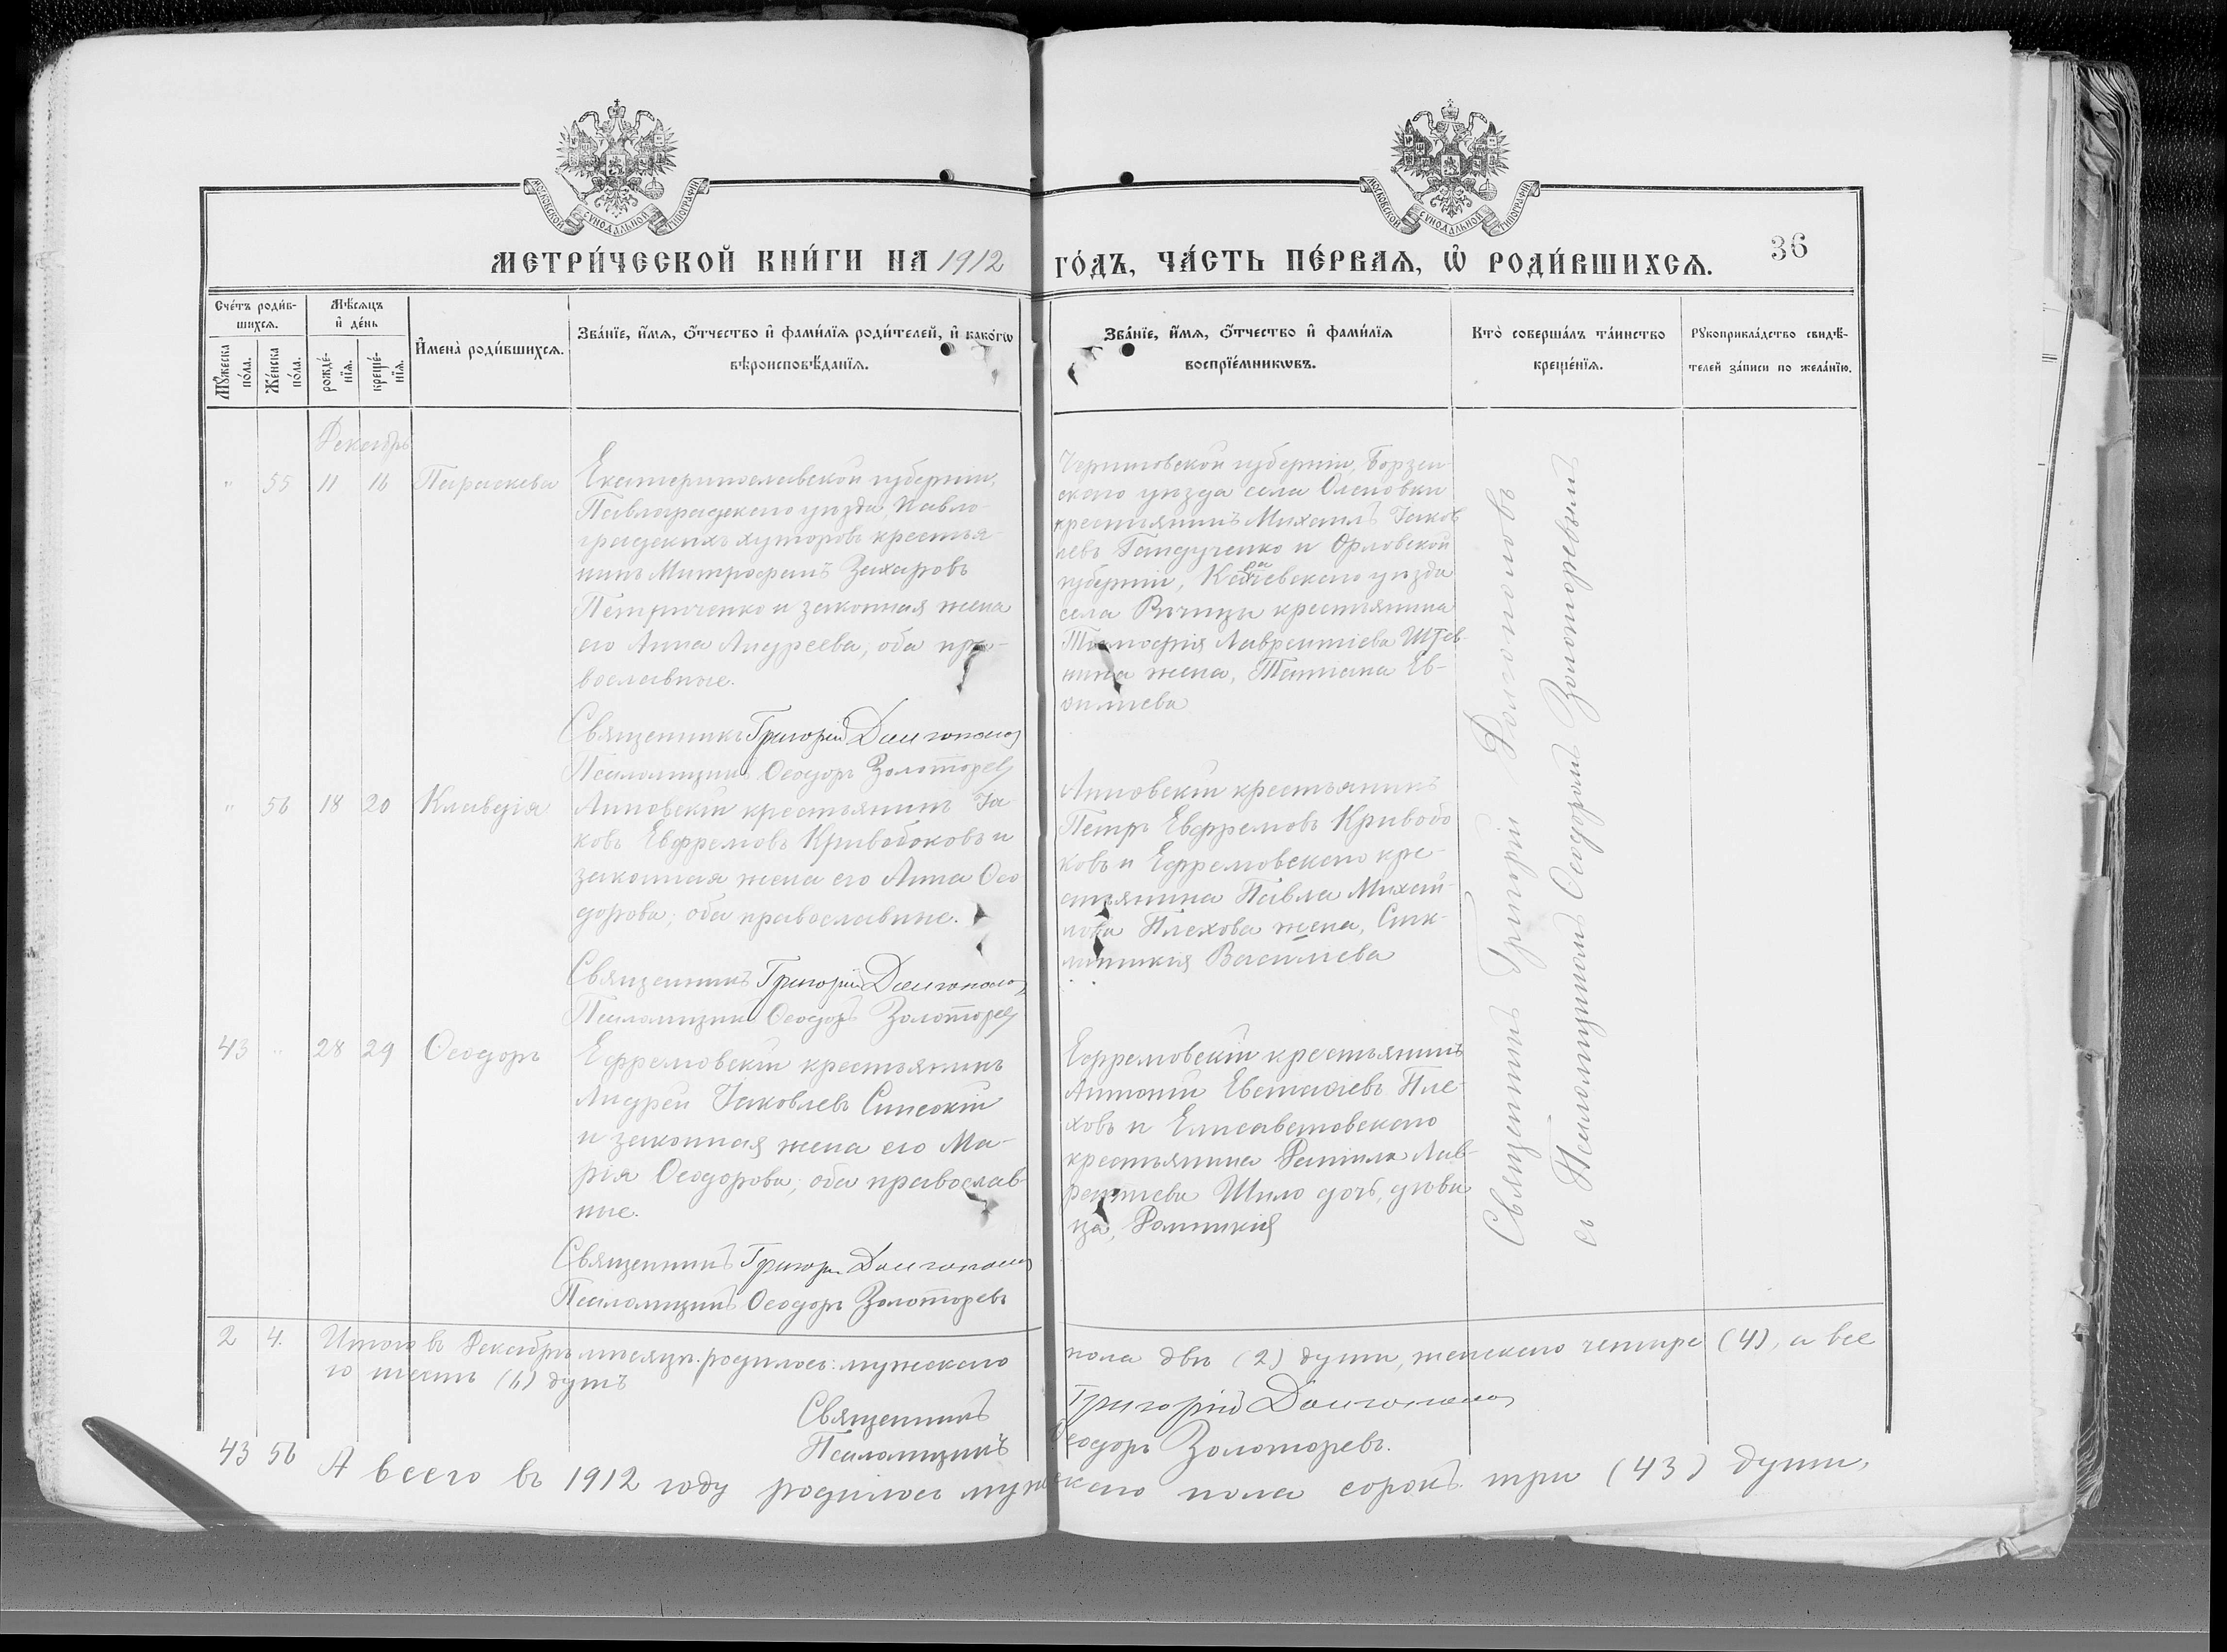 МОСКОВСКОЙ СѴНОДАЛЬНОЙ ТИПОГРАФІИ
МОСКОВСКОЙ СѴНОДАЛЬНОЙ ТИПОГРАФІИ
МЕТРИ́ЧЕСКОЙ КНИ́ГИ НА 1912 ГО́ДЪ, ЧА́СТЬ ПЕ́РВАЯ, Ѡ РОДИ́ВШИХСЯ.
36
Сче́тъ роди́в-
шихся.
Мꙋ́жеска
по́ла.
Же́нска
по́ла.
Мѣ́сяцъ
и҆ де́нь
рожде́-
нїя.
креще́-
нїя.
И҆мена̀ роди́вшихся.
Зва́нїе, и҆́мя, ѻ҆́тчество и҆ фами́лїя роди́телей, и҆ како́гѡ
вѣроисповѣ́данїя.
Зва́нїе, и҆́мя, ѻ҆́тчество и҆ фами́лїя
воспрїе́мникѡвъ.
Кто̀ соверша́лъ та́инство
креще́нїя.
Рꙋкоприкла́дство свидѣ́-
телей за́писи по жела́нїю.
Декабрь
" 55 11 16 Параскева
Екатеринославской губерніи,
Павлоградскаго уѣзда, Павло-
градскихъ хуторовъ крестья-
нинъ Митрофанъ Захаровъ
Петриченко и законная жена
его Анна Андреева; оба пра-
вославные.
Священникъ Григорій Долгополов
Псаломщикъ Ѳеодоръ Золоторев
Черниговской губерніи, Борзен-
скаго уѣзда села Оленовки
крестьянинъ Михаилъ Іаков-
левъ Гандученко и Орловской
губерніи, Карачевскаго уѣзда
села крестьянина
Тимофея Лаврентіева
жена, Татіана Ев-
" 56 18 20 Клавдія
Анновскій крестьянинъ Іа-
ковъ Евфремовъ Кривобоковъ и
законная жена его Анна Ѳео-
дорова; оба православные.
Священникъ Григорій Долгополов
Псаломщикъ Ѳеодоръ Золоторев
Анновскій крестьянинъ
Петръ Евфремовъ Кривобо-
ковъ и Ефремовскаго кре-
стьянина Павла Михай-
лова Плехова жена, Синк-
литикія Васильева
43 " 28 29 Ѳеодоръ
Ефремовскій крестьянинъ
Андрей Іаковлевъ Синеокій
и законная жена его Ма-
рія Ѳеодорова; оба православ-
ные.
Священникъ Григорій Долгополов
Псаломщикъ Ѳеодоръ Золоторевъ
Ефремовскій крестьянинъ
Антоній Евстафіевъ Пле-
ховъ и Елисаветовскаго
крестьянина Даніила Лав-
рентіева Шило дочь, дѣви-
ца, Домникія
Священникъ Григорій Долгополовъ
съ Псаломщикомъ Ѳеодоромъ Золоторевымъ
2 4. Итого въ Декабрѣ мѣсяцѣ родилось: мужескаго пола двѣ (2) души, женскаго четыре (4), а все
го шесть (6) душъ
Священникъ Григорій Долгополов
Псаломщикъ Ѳеодоръ Золоторевъ.
43 56 А всего въ 1912 году родилось мужескаго пола сорокъ три (43) души,